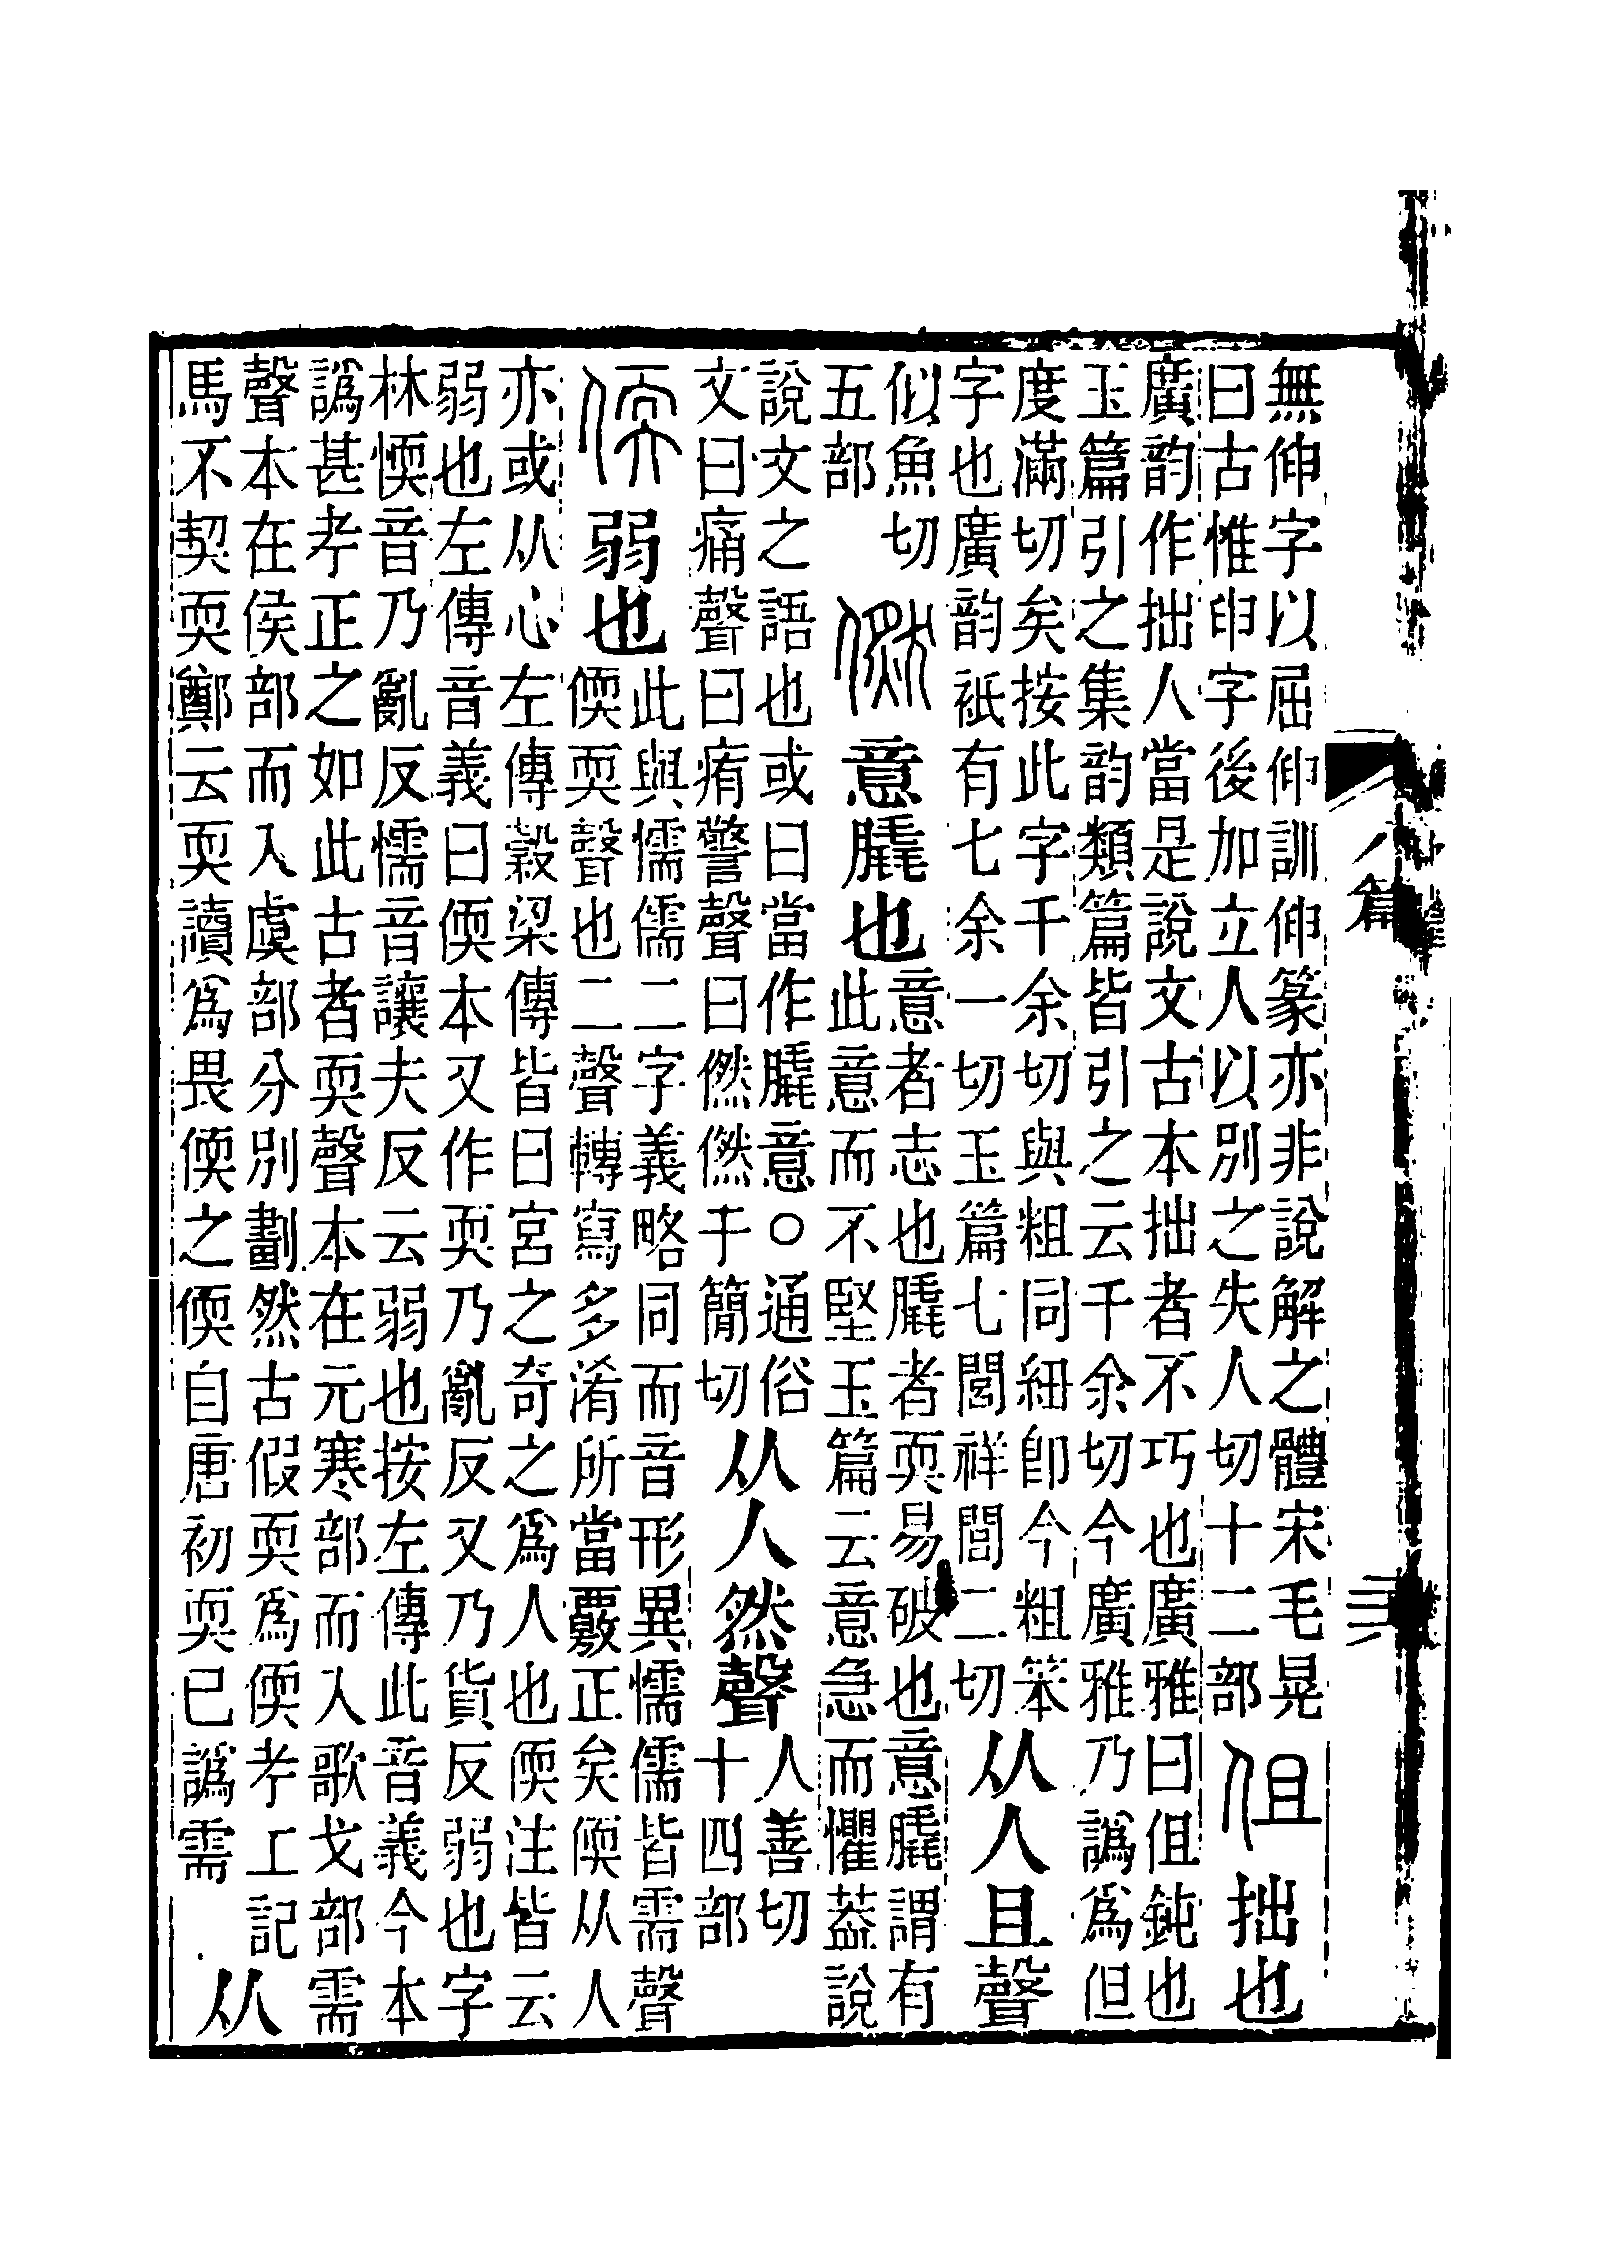 無伸字以屈伸訓伸篆亦非說解之體宋毛晃
曰古惟申字後加立人以別之失人切十二部
伹拙也
廣韵作拙人當是說文古本拙者不巧也廣雅曰伹鈍也
玉篇引之集韵類篇皆引之云千余切今廣雅乃譌爲但
度滿切矣按此字千余切與粗同紐卽今粗笨
字也廣韵衹有七余一切玉篇七閭祥閭二切
从人且聲
似魚切
五部
㒄意膬也
意者志也膬者耎易破也意膬謂有
此意而不堅玉篇云意急而懼葢說
說文之語也或曰當作膬意○通俗
文曰痛聲曰痏警聲曰㒄㒄于簡切
从人然聲
人善切
十四部
偄弱也
此與懦儒二字義略同而音形異懦儒皆需聲
偄耎聲也二聲轉寫多淆所當覈正矣偄从人
亦或从心左傳穀梁傳皆曰宮之奇之爲人也偄注皆云
弱也左傳音義曰偄本又作耎乃亂反又乃貨反弱也字
林愞音乃亂反懦音讓夫反云弱也按左傳此音義今本
譌甚考正之如此古者耎聲本在元寒部而入歌戈部需
聲本在侯部而入虞部分別劃然古假耎爲偄考工記
馬不契耎鄭云耎讀爲畏偄之偄自唐初耎已譌需
从
八篇
三